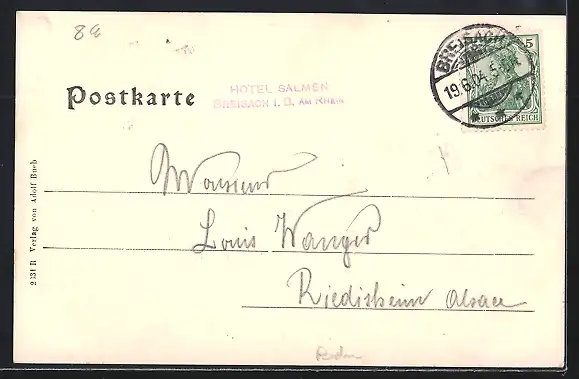 8e
Postkarte
HOTEL SALMEN
BREISACH I. B. AM RHEIN
BREISACH
19.6.04.5
5
DEUTSCHES REICH
Monsieur
Louis Wanger
Riedisheim Alsace
2131 R Verlag von Adolf Bueb